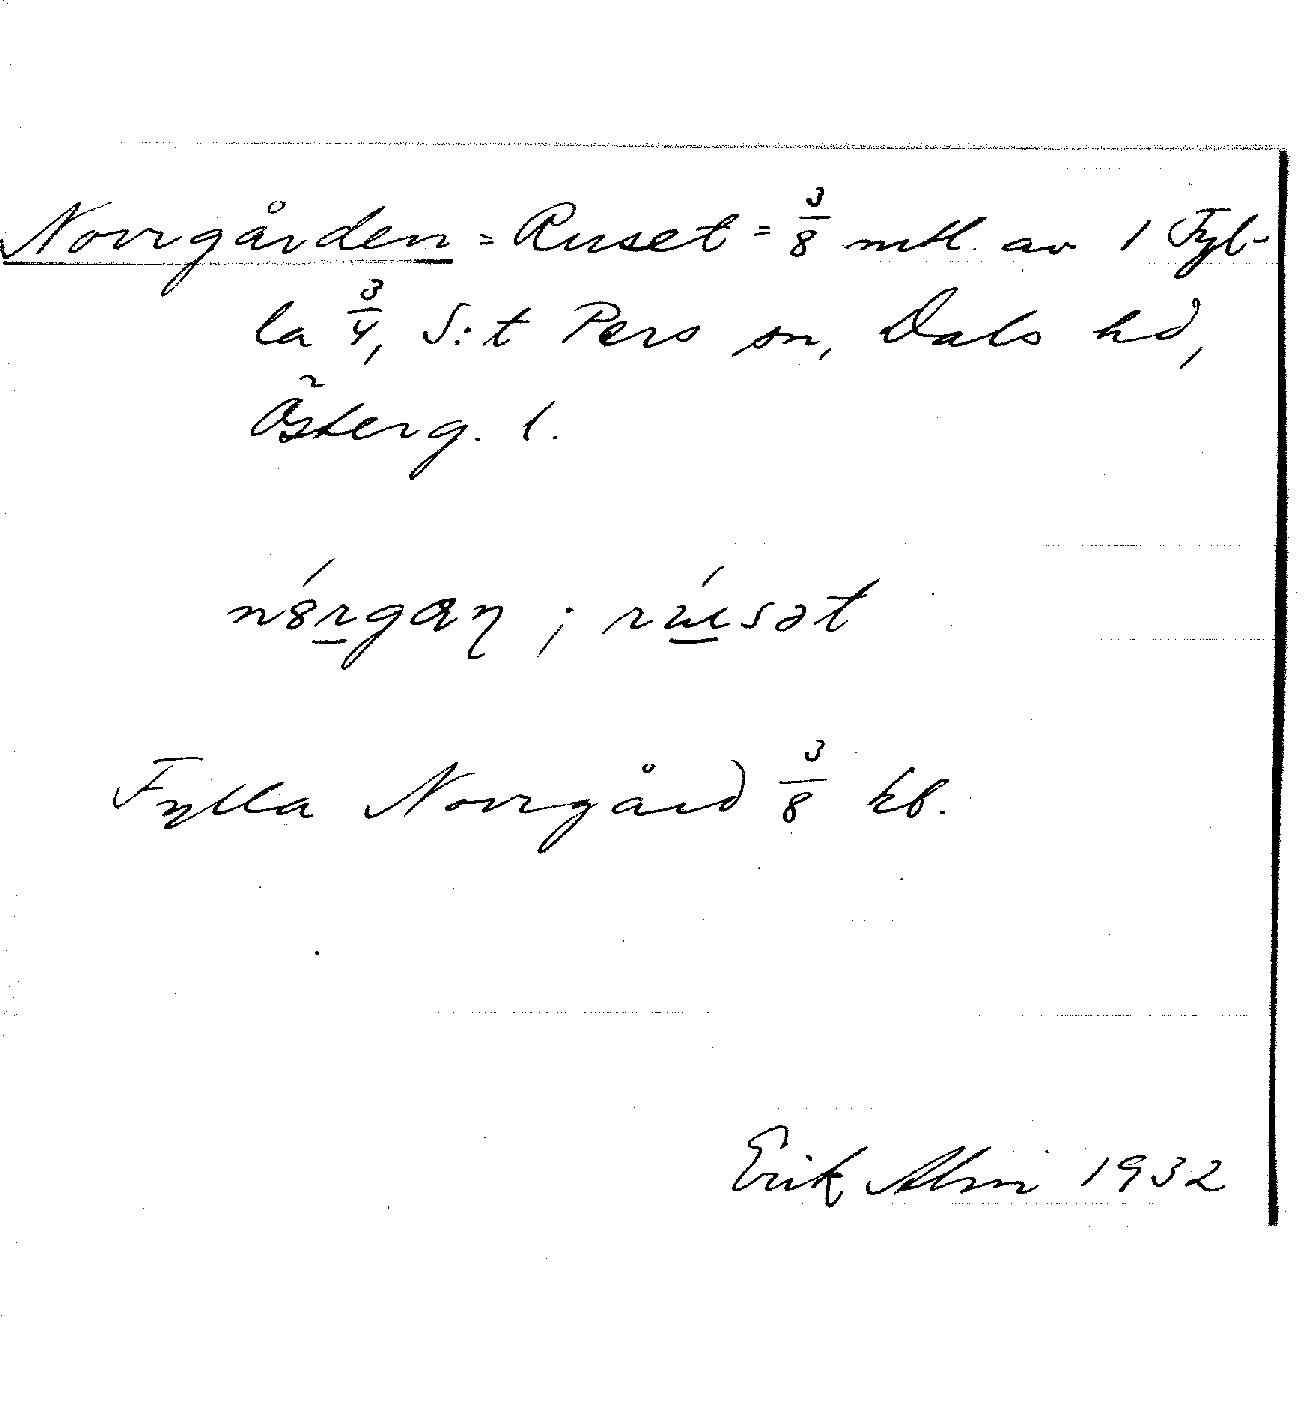 Norrgården = Ruset = 3/8 mtl. av 1 Fyl-
la 3/4, S:t Pers sn, Dals hd,
Österg. l.
nórgaɳ ; rúsət
Fylla Norrgård 3/8 kb.
Erik Alm 1932